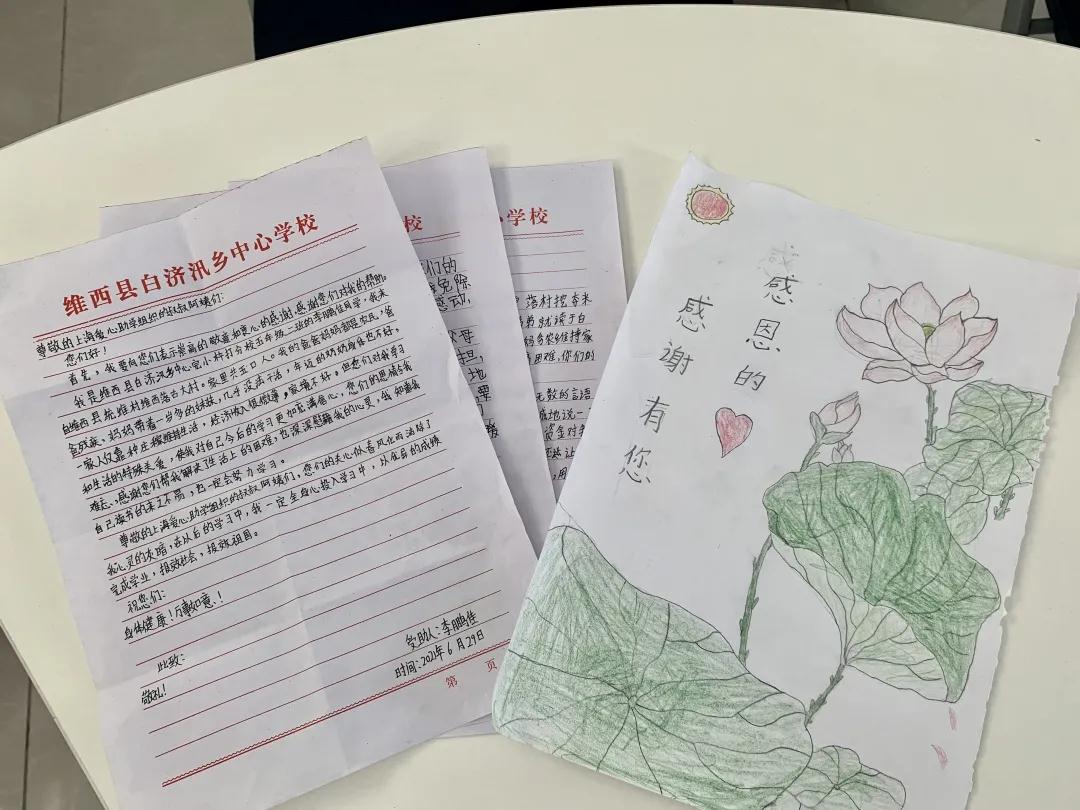 维西县白济汛乡中心学校
尊敬的上海爱心助学组织的叔叔阿姨们:
您们好!
首先,我要向您们表示崇高的敬意和衷心的感谢,感谢您们对我的帮助。
我是维西县白济汛乡中心完小共村打分校五年级二班的李鹏佳同学,我来
自维西县 维村维西落古大村。家里共五口人。我的爸爸妈妈都是农民,爸
爸残疾,妈妈带着一岁多的妹妹,几乎没法干活,年迈的奶奶痴症也不好。
一家人仅靠种庄稼维持生活,经济收入很微薄。家境不好。但您们对我学习
和生活的特殊关爱,使我对自己今后的学习更加充满信心,您们的恩情令我
难忘,感谢您们帮我解决了生活上的困难,也深深慰藉我的心灵,我知道我
自己读书的来之不易,也一定会努力学习。
尊敬的上海爱心助学组织的叔叔阿姨们,您们的关心似春风化雨洁净了
我心灵的灰暗,在以后的学习中,我一定全身心投入学习中,以优异的成绩
完成学业,报效社会,报效祖国。
祝您们:
身体健康!万事如意!!
此致:
敬礼!
受助人:李鹏佳
时间:2021年6月29日
第 页
校
们的
免除
感动,
父母
地
学校
落村挖夺米
弟就读于白
务农维持家
困难,你们的
无数的言语
地说一
资金对
感
感恩的
感谢
有您